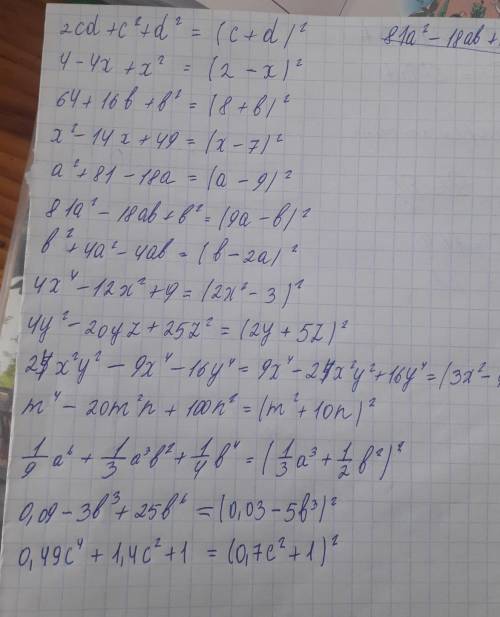 2cd + c² + d² = (c + d)² 81a² - 18ab +
4 - 4x + x² = (2 - x)²
64 + 16b + b² = (8 + b)²
x² - 14x + 49 = (x - 7)²
a² + 81 - 18a = (a - 9)²
81a² - 18ab + b² = (9a - b)²
b² + 4a² - 4ab = (b - 2a)²
4x⁴ - 12x² + 9 = (2x² - 3)²
4y² - 20yz + 25z² = (2y + 5z)²
24x²y² - 9x⁴ - 16y⁴ = 9x⁴ - 24x²y² + 16y⁴ = (3x² -
m⁴ - 20m²n + 100n² = (m² + 10n)²
1/9 a⁶ + 1/3 a³b² + 1/4 b⁴ = (1/3 a³ + 1/2 b²)²
0,09 - 3b³ + 25b⁶ = (0,03 - 5b³)²
0,49c⁴ + 1,4c² + 1 = (0,7c² + 1)²